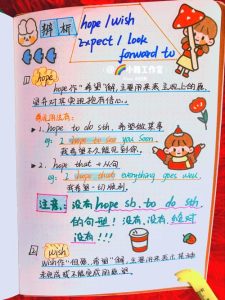 辨析
hope / wish
expect / look
forward to
小鹅工作室
1 hope
hope作"希望"解,主要用来表主观上的愿
望并对其实现抱有信心。
常见用法有:
1. hope to do sth. 希望做某事
eg: I hope to see you soon.
我希望不久能见到你。
2. hope that +从句
eg: I hope that everything goes well.
我希望一切顺利。
注意:没有hope sb. to do sth.
的句型!没有、没有、绝对
没有!!!
2 wish
wish作"但愿、希望"解,主要用来表示某种
未完成或不能完成的愿望